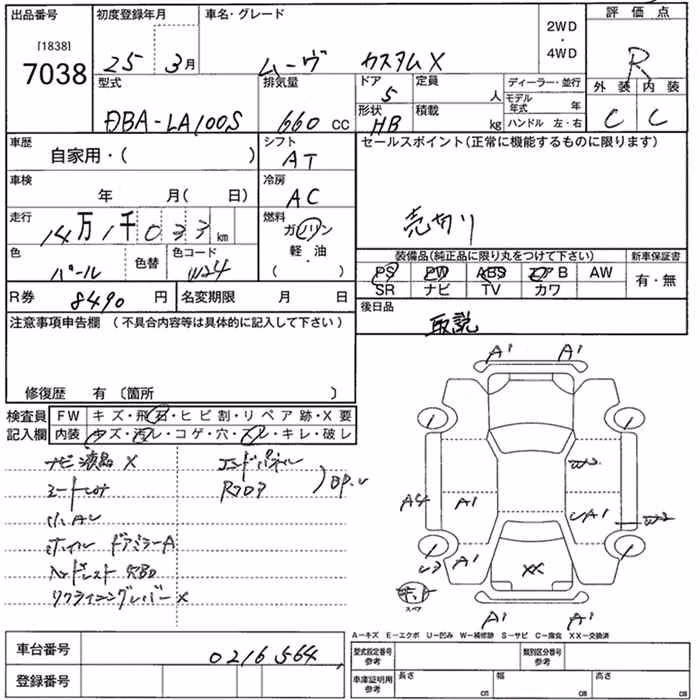 出品番号
[1838]
7038
初度登録年月
25 3月
車名・グレード
ムーヴ カスタムX
2WD
・
4WD
評価点
R
外装 内装
C C
型式
DBA-LA100S
排気量
660 CC
ドア
5
形状
HB
定員
人
積載
kg
ディーラー・並行
モデル年式 年
ハンドル 左・右
車歴
自家用・( )
シフト
AT
セールスポイント(正常に機能するものに限ります)
売切り
車検
年 月( 日)
冷房
AC
走行
14万1千033km
燃料
ガソリン
軽・油
( )
色
パール
色替
色コード
W24
装備品(純正品に限り丸をつけて下さい)
PS PW ABS エアB AW
SR ナビ TV カワ
新車保証書
有・無
R券
8490円
名変期限 月 日
後日品
取説
注意事項申告欄(不具合内容等は具体的に記入して下さい)
修復歴 有〔箇所 〕
検査員記入欄
FW キズ・飛石・ヒビ割・リペア跡・X要
内装 キズ・汚レ・コゲ・穴・スレ・キレ・破レ
ナビ液晶X
エンドパネル
Rフロア
シートコゲ
小AU
ホイル ドアミラーA
リクライニングレバーX
A1 A1
1 1
A4 A1
A1
W2
1 1
A1
XX
スペア
A1 A1
A−キズ E−エクボ U−凹み W−補修跡 S−サビ C−腐食 XX−交換済
車台番号
0216564
登録番号
型式指定番号
参考
類別区分番号
参考
車庫証明用
参考
長さ cm
幅 cm
高さ cm